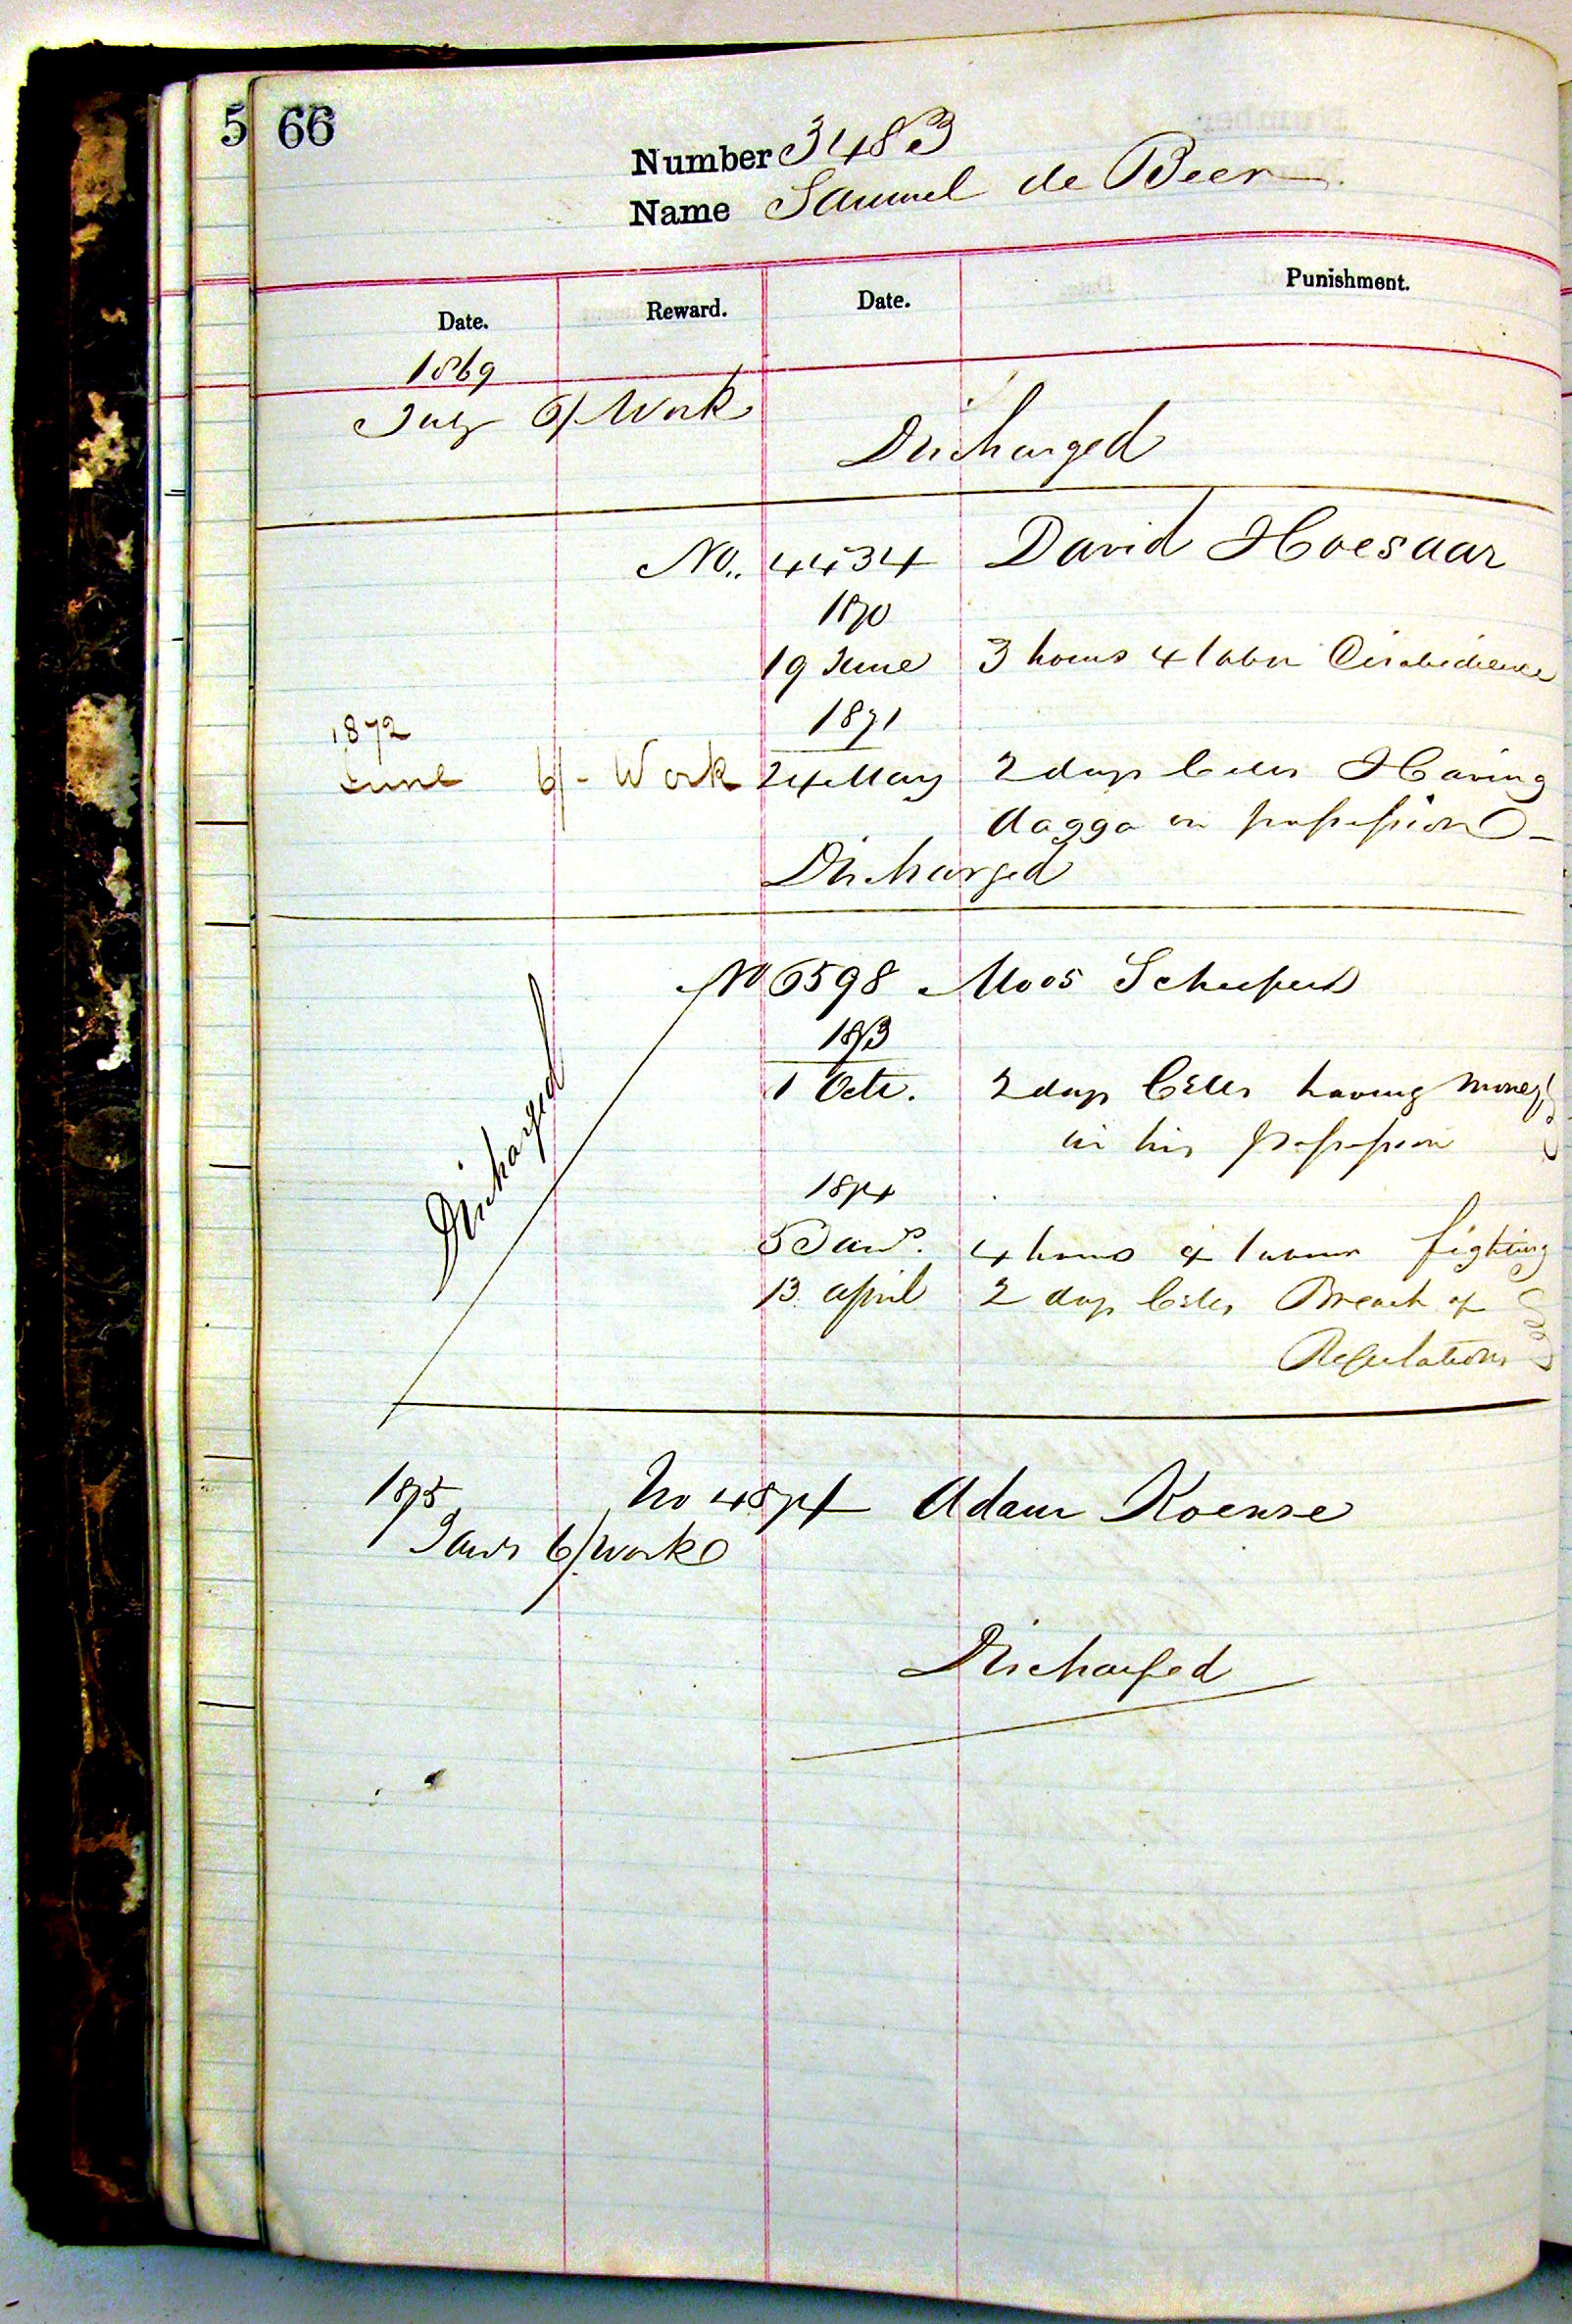 5 66
Number 3483
Name Samuel de Beer
Date. Reward. Date. Punishment.
1869
July 6/ Work
Discharged
No. 4434 David Hoesaar
1870
19 June 3 hours & labor Disobedience
1871
1872
June 6/- Work 24 May 2 days Cells Having
dagga in possession
Discharged
No 6598 Moos Scheepers
1873
1 Octr. 2 days Cells having money
in his possession
Discharged
1874
5 Jany. 4 hours & labour fighting
13 april 2 days Cells Breach of
Regulations
1875 No 4874 Adam Koense
Jany 6/ Work
Discharged